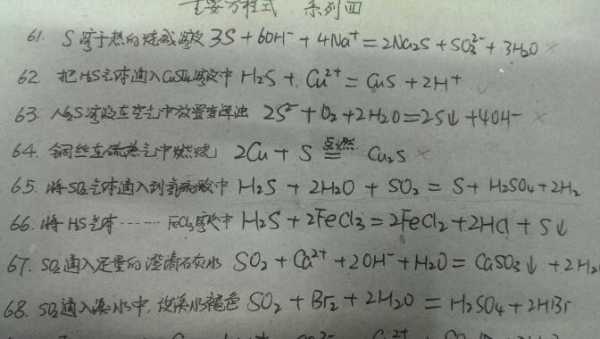 重要方程式 系列四
61. S溶于热的烧碱溶液 3S+6OH⁻+4Na⁺=2Na₂S+SO₃²⁻+3H₂O ×
62. 把H₂S气体通入CuSO₄溶液中 H₂S+Cu²⁺=CuS+2H⁺
63. Na₂S溶液在空气中放置变浑浊 2S²⁻+O₂+2H₂O=2S↓+4OH⁻ ×
64. 铜丝在硫蒸气中燃烧 2Cu+S 点燃 = Cu₂S ×
65. 将SO₂气体通入到氢硫酸中 H₂S+2H₂O+SO₂=S+H₂SO₄+2H₂
66. 将H₂S气体…… FeCl₃溶液中 H₂S+2FeCl₃=2FeCl₂+2HCl+S↓
67. SO₂通入足量的澄清石灰水 SO₂+Ca²⁺+2OH⁻+H₂O=CaSO₃↓+2H₂
68. SO₂通入溴水中,使溴水褪色 SO₂+Br₂+2H₂O=H₂SO₄+2HBr